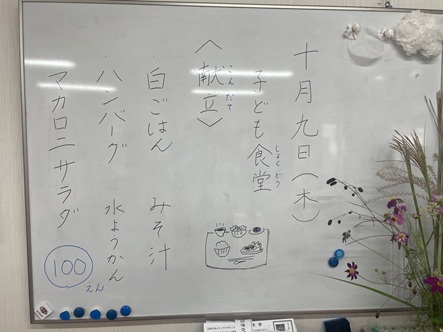 十月九日(木)
子ども食堂
しょくどう
〈献立〉
こんだて
白ごはん みそ汁
ハンバーグ 水ようかん
マカロニサラダ
100えん